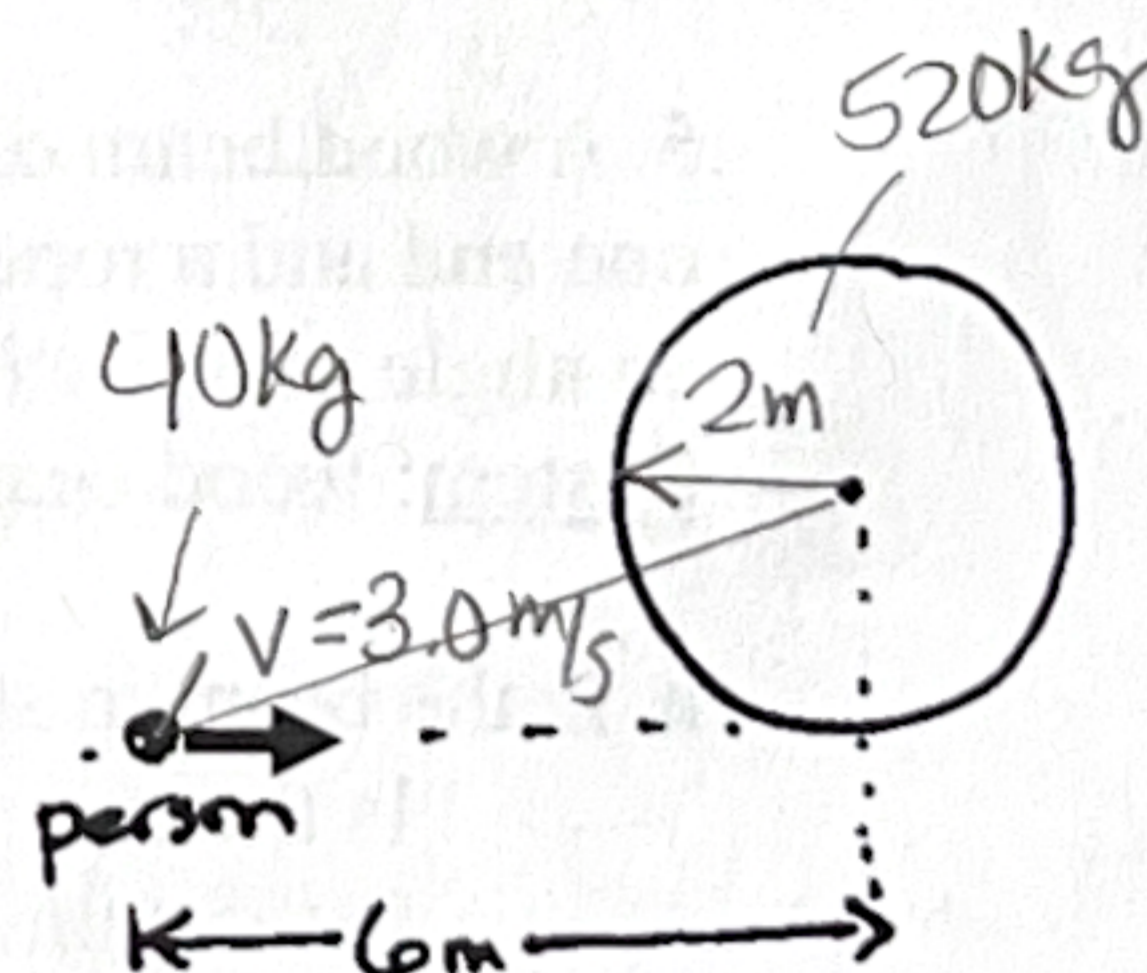 520kg
40kg
2m
V=3.0m/s
person
6m